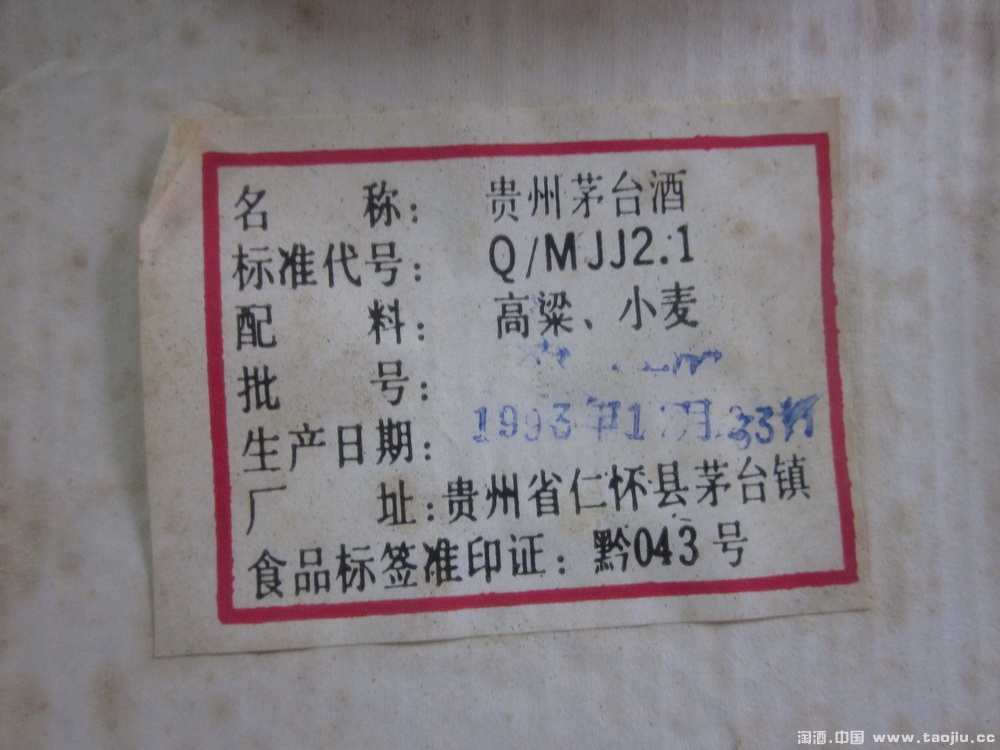 名称：贵州茅台酒
标准代号：Q/MJJ2.1
配料：高粱、小麦
批号：
生产日期：1993年1
厂址：贵州省仁怀县茅台镇
食品标签准印证：黔043号
淘酒.中国 www.taojiu.cc